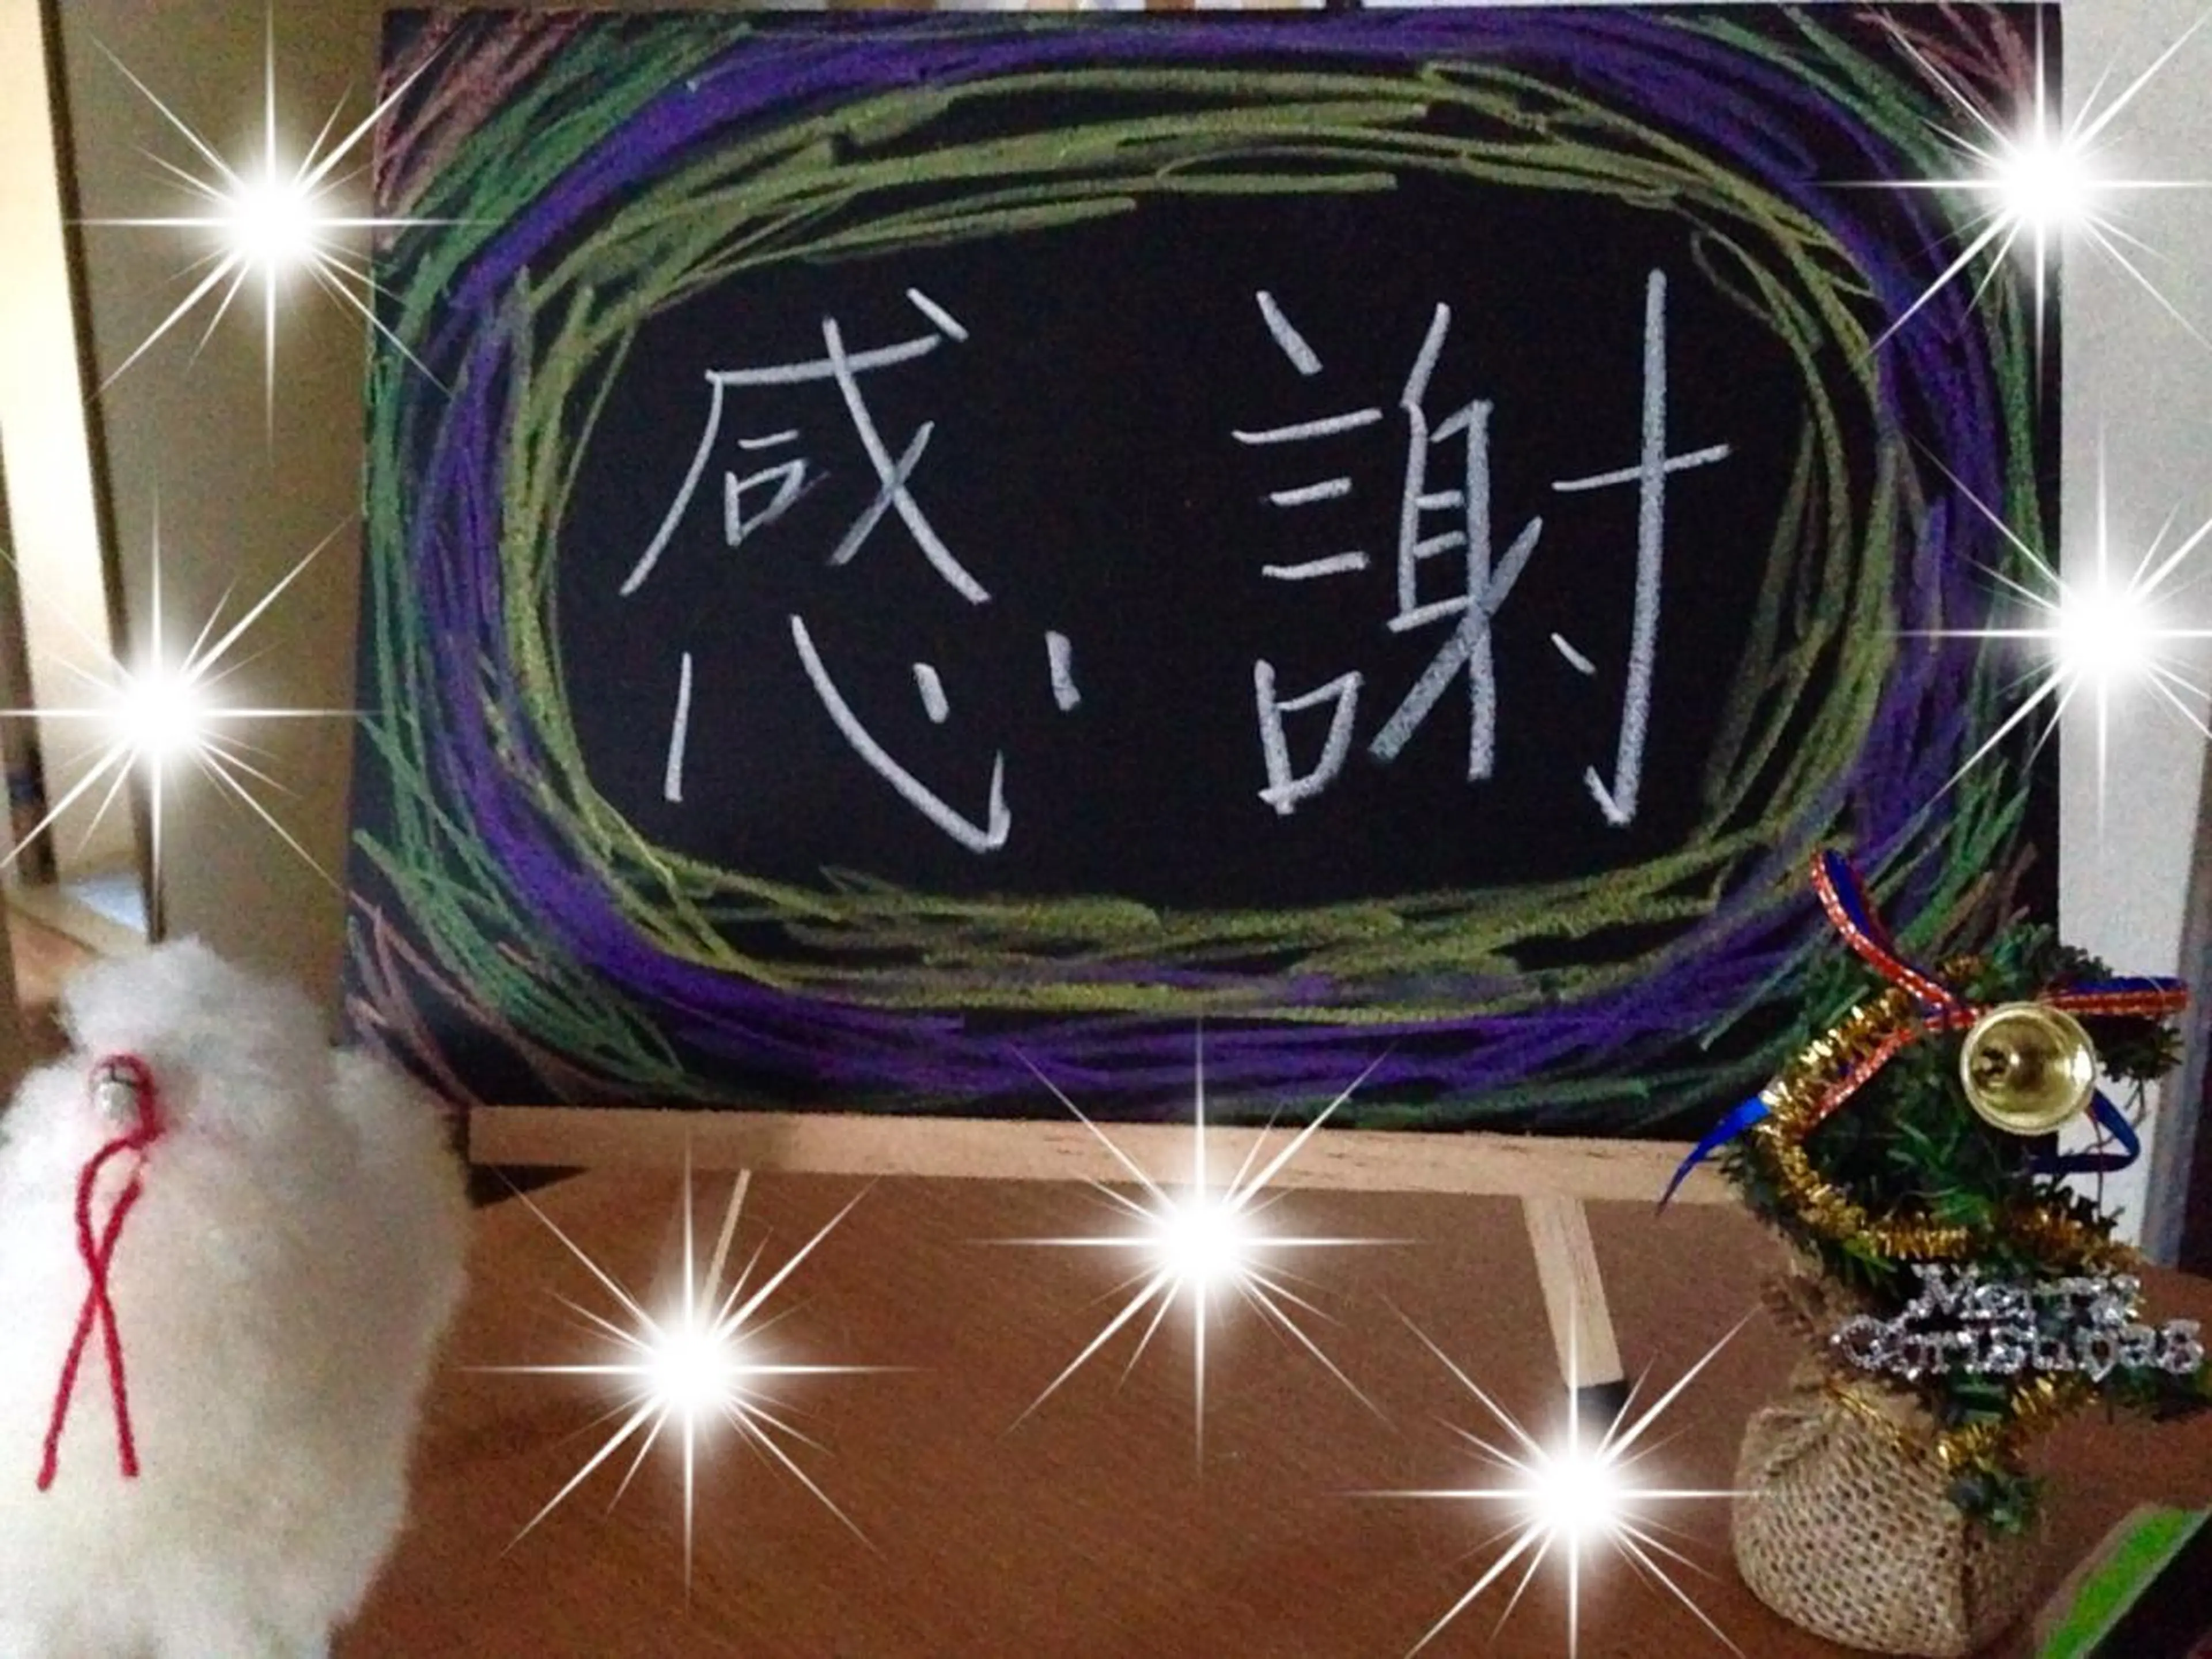 感謝
Merry
Christmas